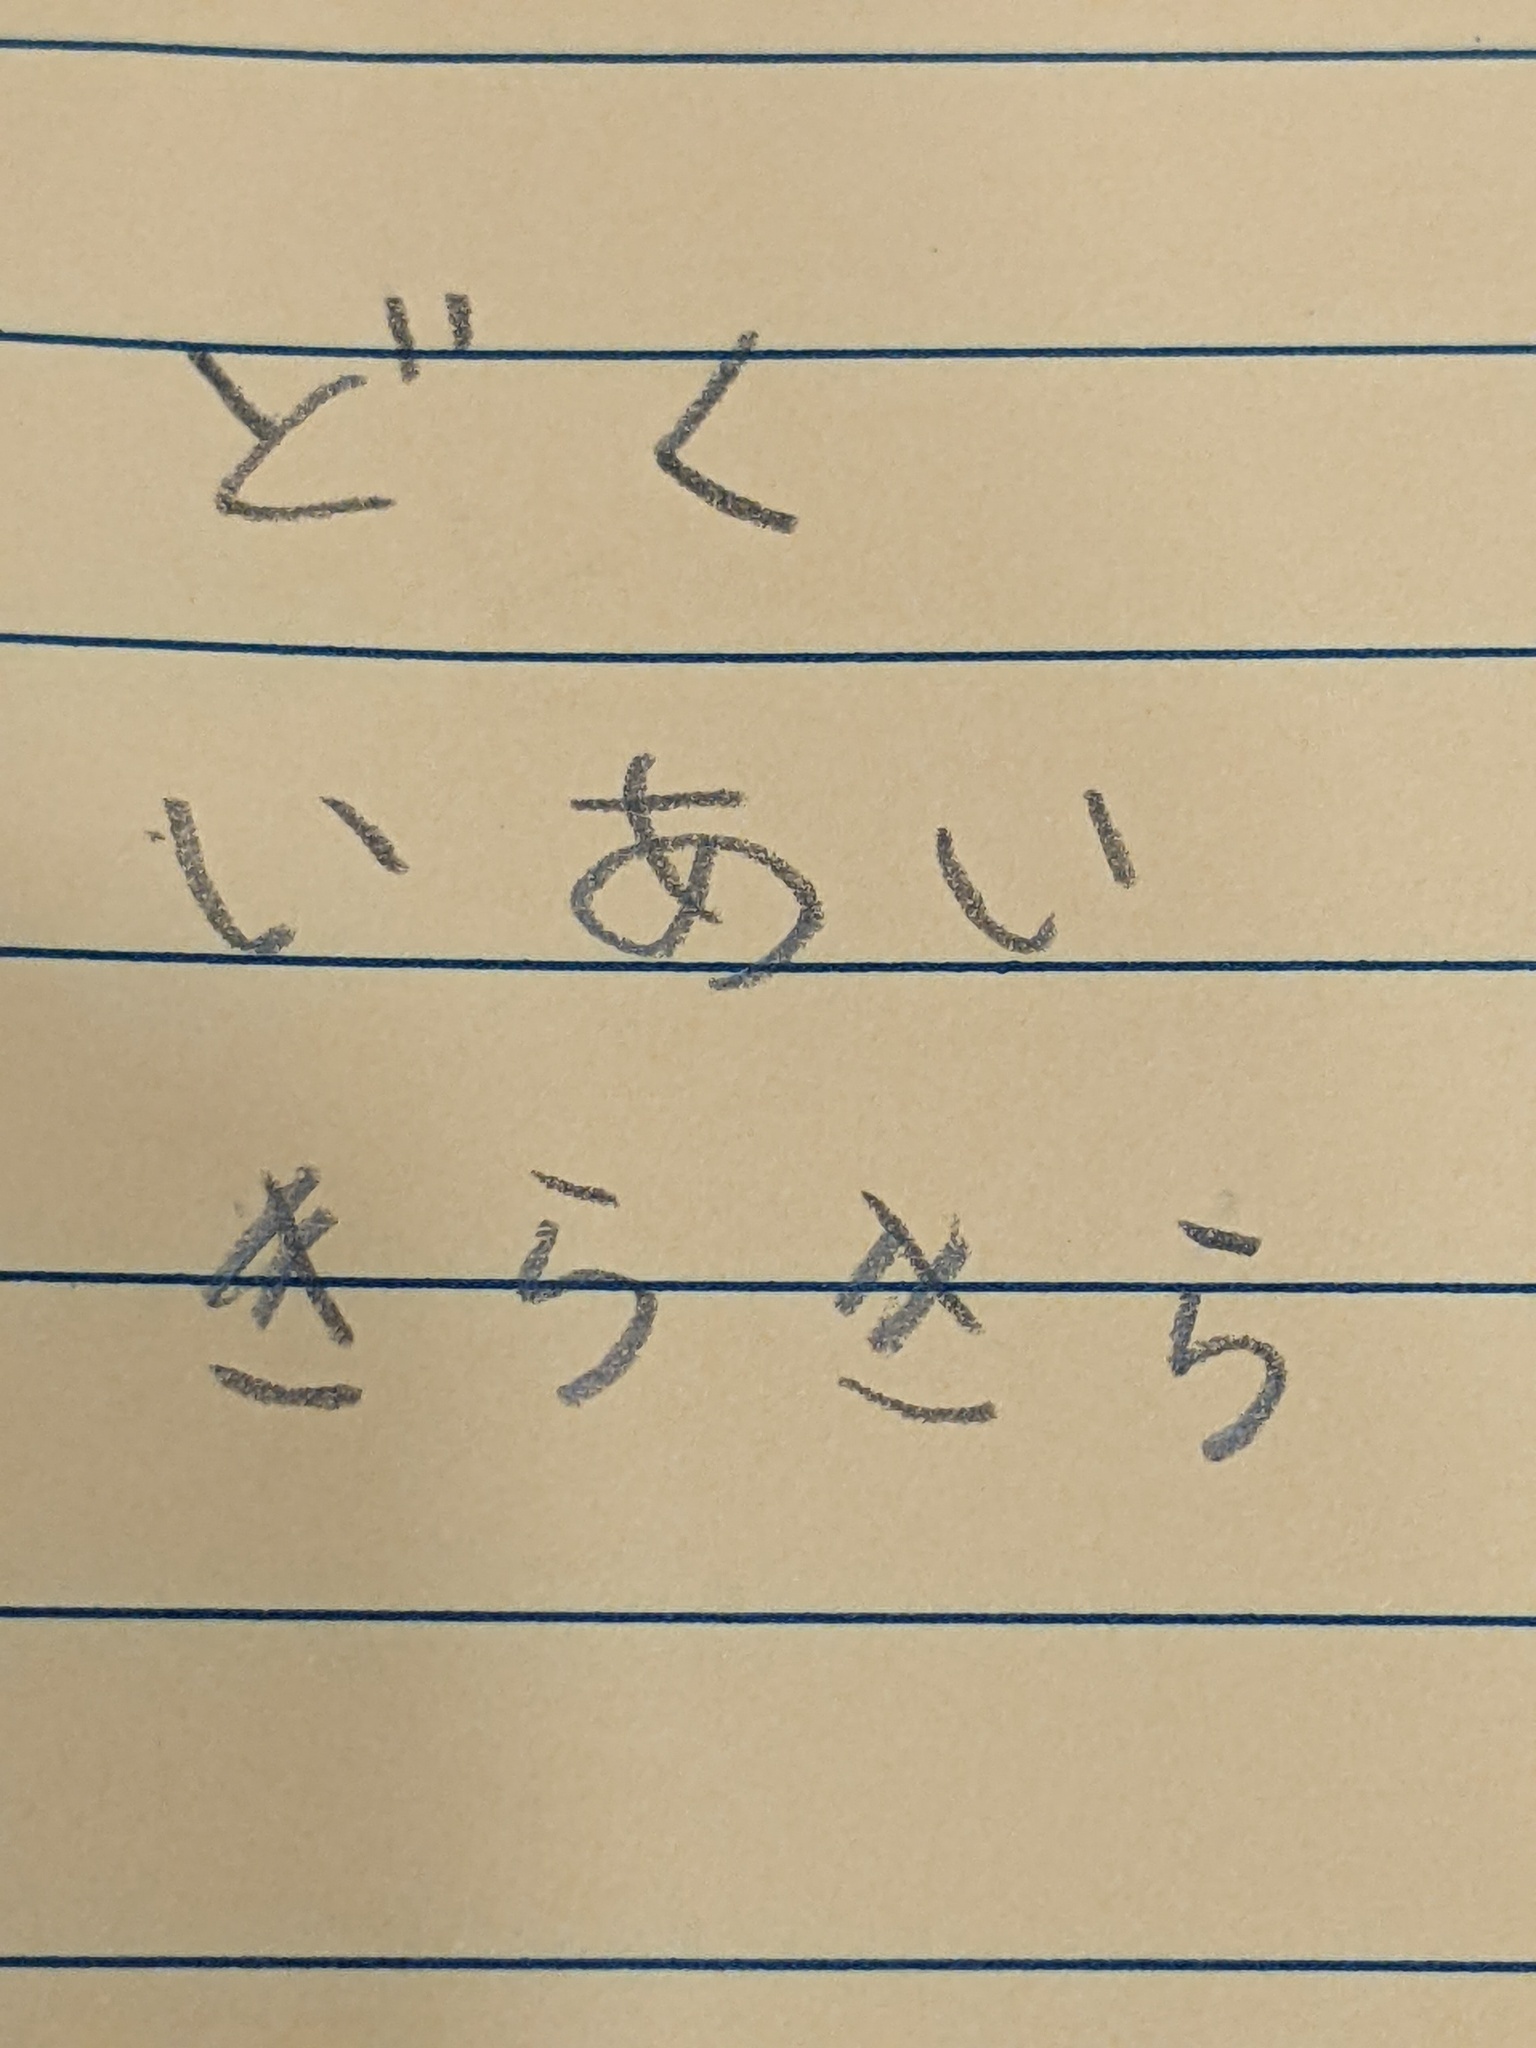 どく
いあい
きらきら